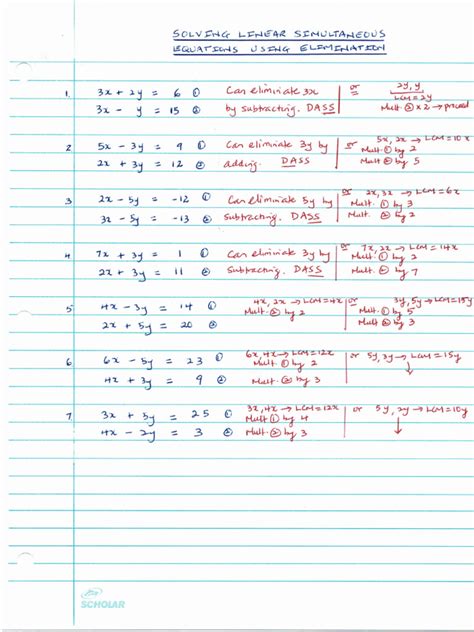 SOLVING LINEAR SIMULTANEOUS
EQUATIONS USING ELIMINATION
1. 3x + 2y = 6 ① Can eliminiate 3x or 2y, y LCM = 2y
3x - y = 15 ② by subtracting. DASS Mult. ② x 2 → proceed
2 5x - 3y = 9 ① Can eliminate 3y by or 5x, 2x → LCM = 10x Mult ① by 2
2x + 3y = 12 ② adding. DASS Mult ② by 5
3 2x - 5y = -12 ① Can eliminiate 5y by or 2x, 3x → LCM = 6x Mult. ① by 3
3x - 5y = -13 ② subtracting. DASS Mult ② by 2
4 7x + 3y = 1 ① Can eliminiate 3y by or 7x, 2x → LCM = 14x Mult. ① by 2
2x + 3y = 11 ② subtracting. DASS Mult ② by 7
5 4x - 3y = 14 ① 4x, 2x → LCM = 4x Mult. ② by 2 or 3y, 5y → LCM = 15y Mult ① by 5
2x + 5y = 20 ② Mult ② by 3
6 6x - 5y = 23 ① 6x, 4x → LCM = 12x Mult. ① by 2 or 5y, 3y → LCM = 15y
4x + 3y = 9 ② Mult. ② by 3
7 3x + 5y = 25 ① 3x, 4x → LCM = 12x Mult ① by 4 or 5y, 2y → LCM = 10y
4x - 2y = 3 ② Mult. ② by 3
SCHOLAR